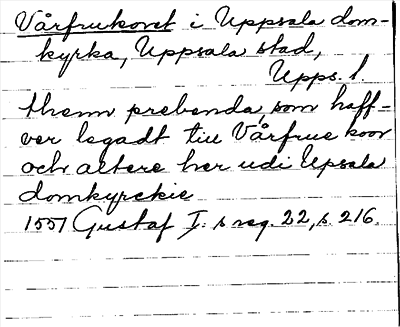 Vårfrukoret i Uppsala dom-
kyrka, Uppsala stad,
Upps. l.
thenn prebenda, som haff-
ver legadt till Vårfrue koor
och altere her udi Upsala
domkyrckie
1551 Gustaf I:s reg. 22, s. 216.